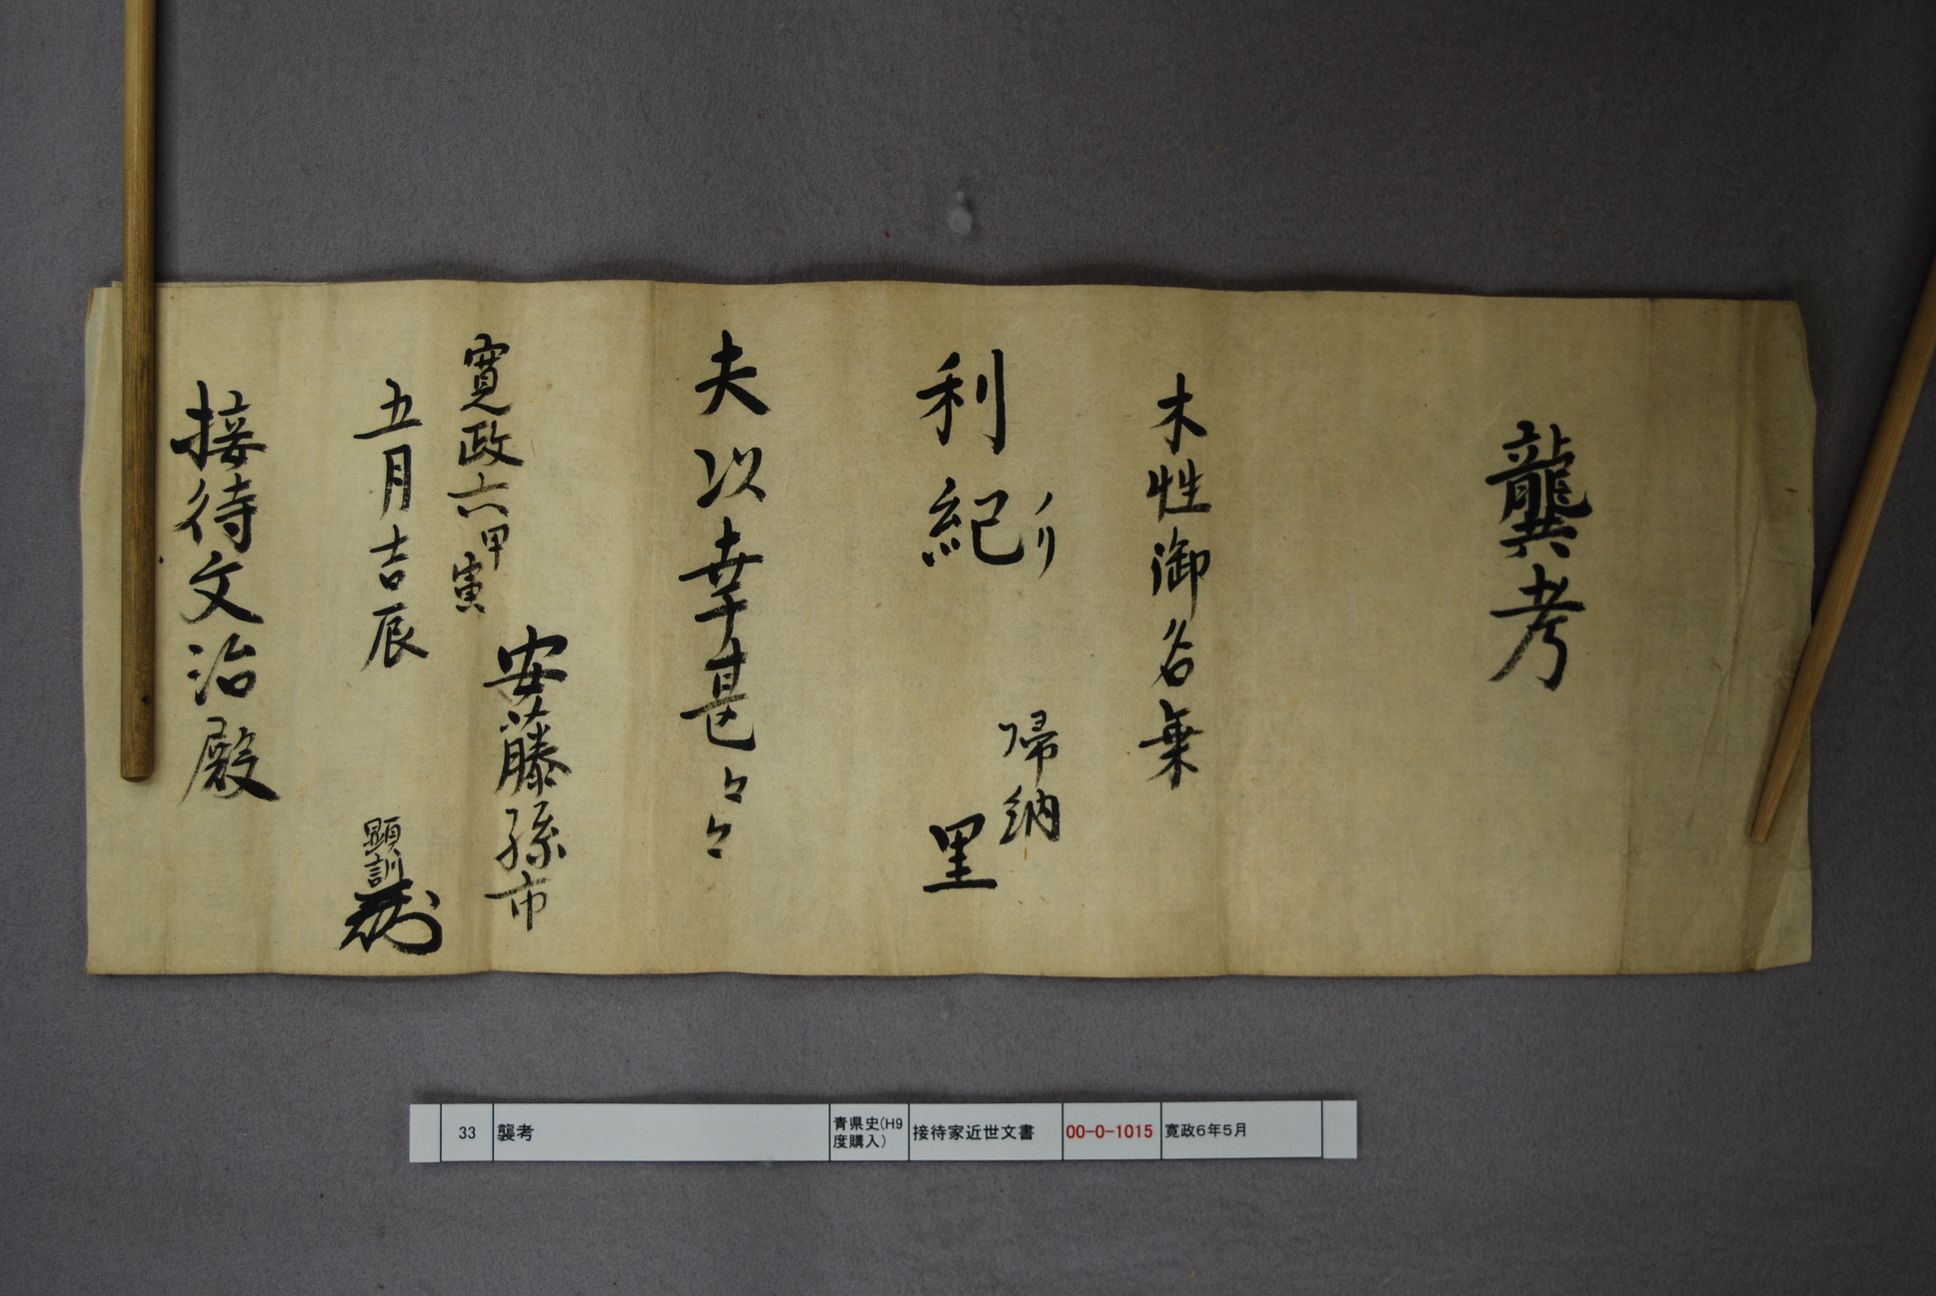 龔考
木性御名乗
利紀
ノリ
帰納
里
夫以幸甚々々
寛政六甲寅
安藤孫市
五月吉辰
顕訓
接待文治殿
33
襲考
青県史(H9
度購入)
接待家近世文書
00-0-1015
寛政6年5月